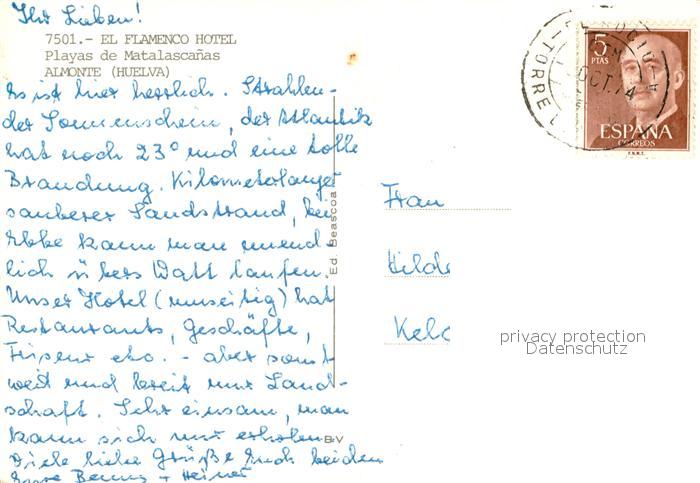 Ihr Lieben!
7501.- EL FLAMENCO HOTEL
Playas de Matalascañas
ALMONTE (HUELVA)
Es ist hier herrlich. Strahlen-
der Sonnenschein, der Atlantik
hat noch 23° und eine tolle
Brandung. Kilometerlanger
sauberer Sandstrand, bei
Ebbe kann man unend-
lich übers Watt laufen.
Unser Hotel (umseitig) hat
Restaurants, Geschäfte,
Friseur etc. - aber sonst
weit und breit nur Land-
schaft. Sehr einsam, man
kann sich nur erholen.
Viele liebe Grüße Euch beiden
Heiner
Ed. Beascoa
B-V
5
PTAS
ESPAÑA
CORREOS
OCT.74
TORRE
Frau
Hilde
privacy protection
Datenschutz